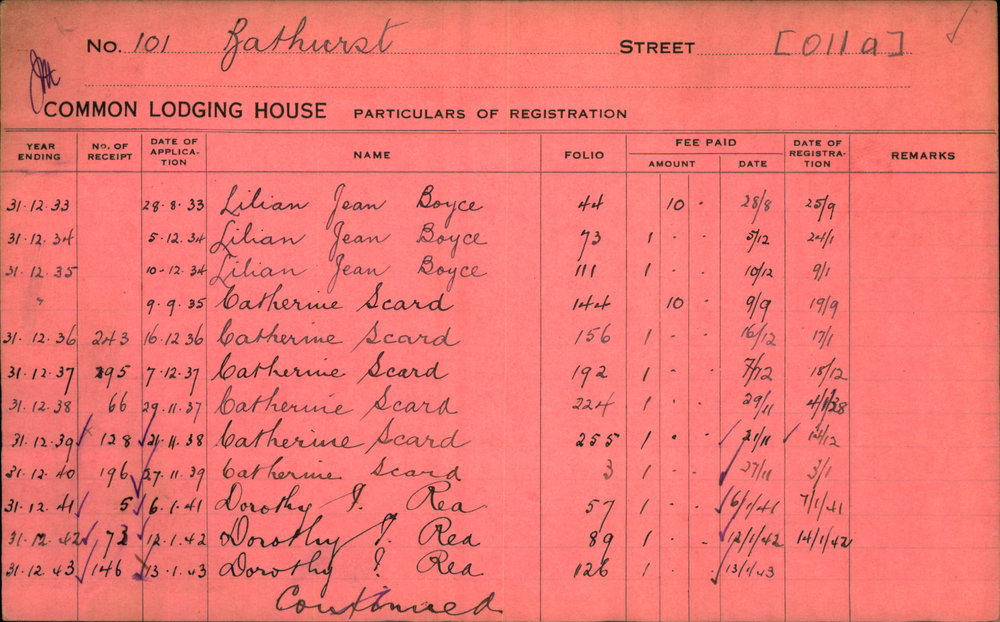 No. 101 Bathurst STREET [011a]
COMMON LODGING HOUSE PARTICULARS OF REGISTRATION
YEAR ENDING No. OF RECEIPT DATE OF APPLICA-TION NAME FOLIO FEE PAID AMOUNT DATE DATE OF REGISTRA-TION REMARKS
31.12.33 28.8.33 Lilian Jean Boyce 44 10 - 28/8 25/9
31.12.34 5.12.34 Lilian Jean Boyce 73 1 - - 5/12 24/1
31.12.35 10.12.34 Lilian Jean Boyce 111 1 - - 10/12 9/1
" 9.9.35 Catherine Scard 144 10 - 9/9 19/9
31.12.36 243 16.12.36 Catherine Scard 156 1 - - 16/12 17/1
31.12.37 295 7.12.37 Catherine Scard 192 1 - - 7/12 18/12
31.12.38 66 29.11.37 Catherine Scard 224 1 - - 29/11 4/1/38
31.12.39 128 21.11.38 Catherine Scard 255 1 - - 21/11 12
31.12.40 196 27.11.39 Catherine Scard 3 1 - - 27/11 3/1
31.12.41 5 6.1.41 Dorothy I. Rea 57 1 - - 6/1/41 7/1/41
31.12.42 73 12.1.42 Dorothy I. Rea 89 1 - - 12/1/42 14/1/42
31.12.43 146 13.1.43 Dorothy I. Rea 126 1 - - 13/1/43
Continued